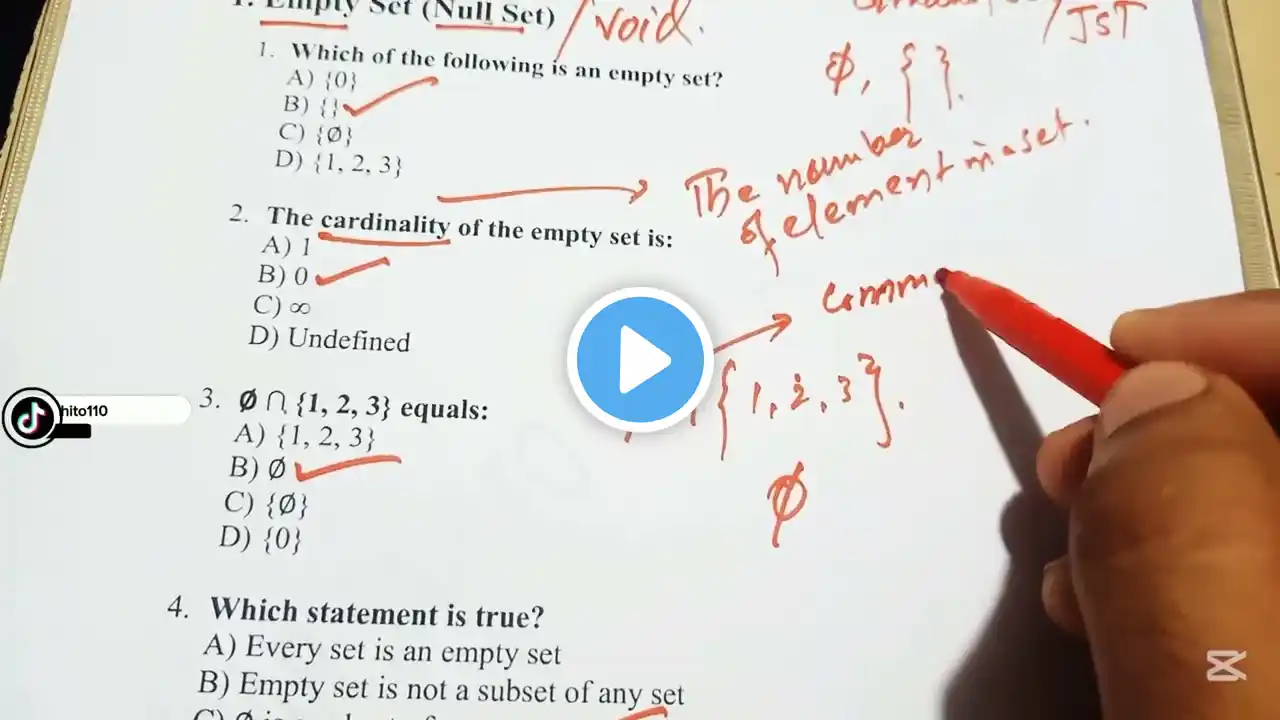 1. Empty Set (Null Set) / void.
/ JST
1. Which of the following is an empty set?
A) {0}
B) {}
C) {∅}
D) {1, 2, 3}
∅, { }.
The number
of element in a set.
2. The cardinality of the empty set is:
A) 1
B) 0
C) ∞
D) Undefined
Comm
{1, 2, 3}.
∅
hito110
3. ∅ ∩ {1, 2, 3} equals:
A) {1, 2, 3}
B) ∅
C) {∅}
D) {0}
4. Which statement is true?
A) Every set is an empty set
B) Empty set is not a subset of any set